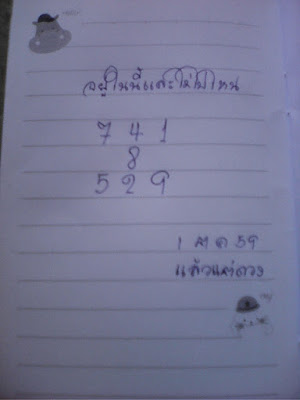 อยู่ในนี้แหละไม่ไปไหน
7 4 1
8
5 2 9
1 ตค 59
แล้วแต่ดวง